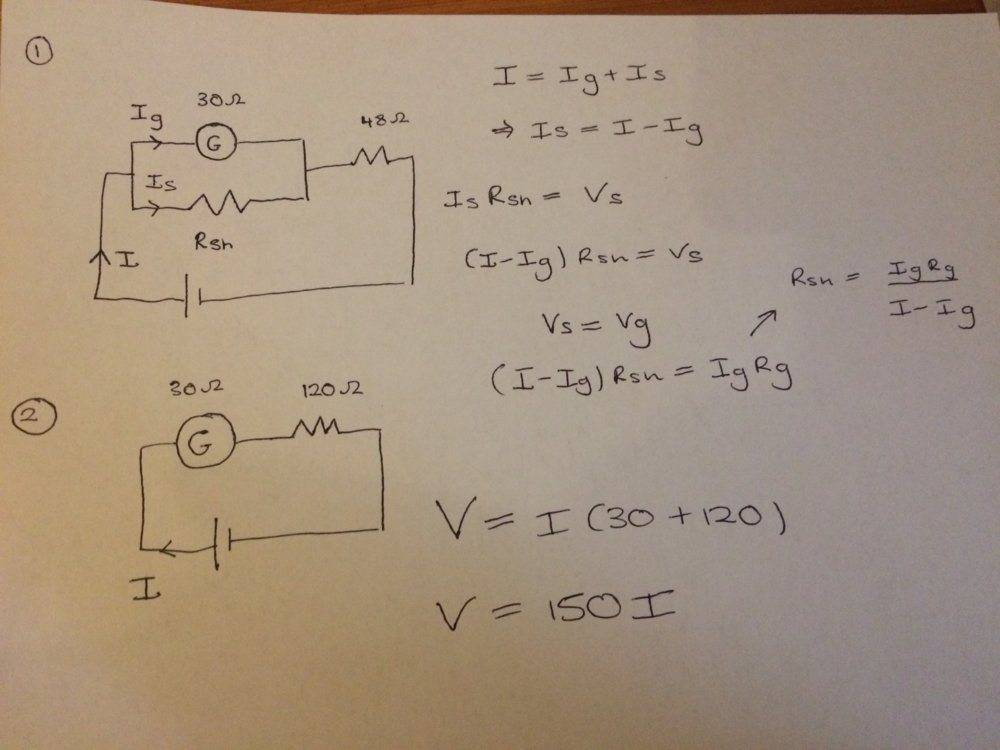 ①
30Ω
Ig
G
48Ω
Is
Rsh
I
I = Ig + Is
⇒ Is = I - Ig
Is Rsh = Vs
(I-Ig) Rsh = Vs
Vs = Vg
(I-Ig) Rsh = Ig Rg
↗
Rsh = Ig Rg / I - Ig
②
30Ω
120Ω
G
I
V = I (30 + 120)
V = 150 I